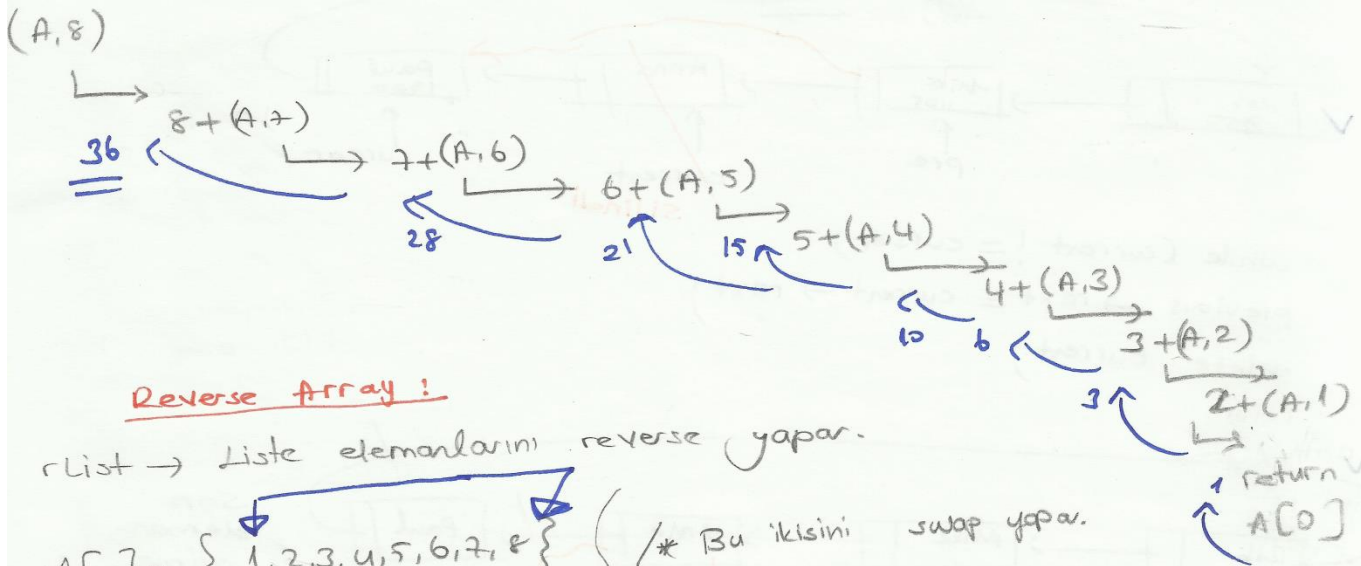 (A,8)
8+(A,7)
36
7+(A,6)
28
6+(A,5)
21
5+(A,4)
15
4+(A,3)
10
3+(A,2)
6
2+(A,1)
3
1 return
A[0]
Reverse Array!
rList → Liste elemanlarını reverse yapar.
A[ ] { 1,2,3,4,5,6,7,8 } /* Bu ikisini swap yapar.